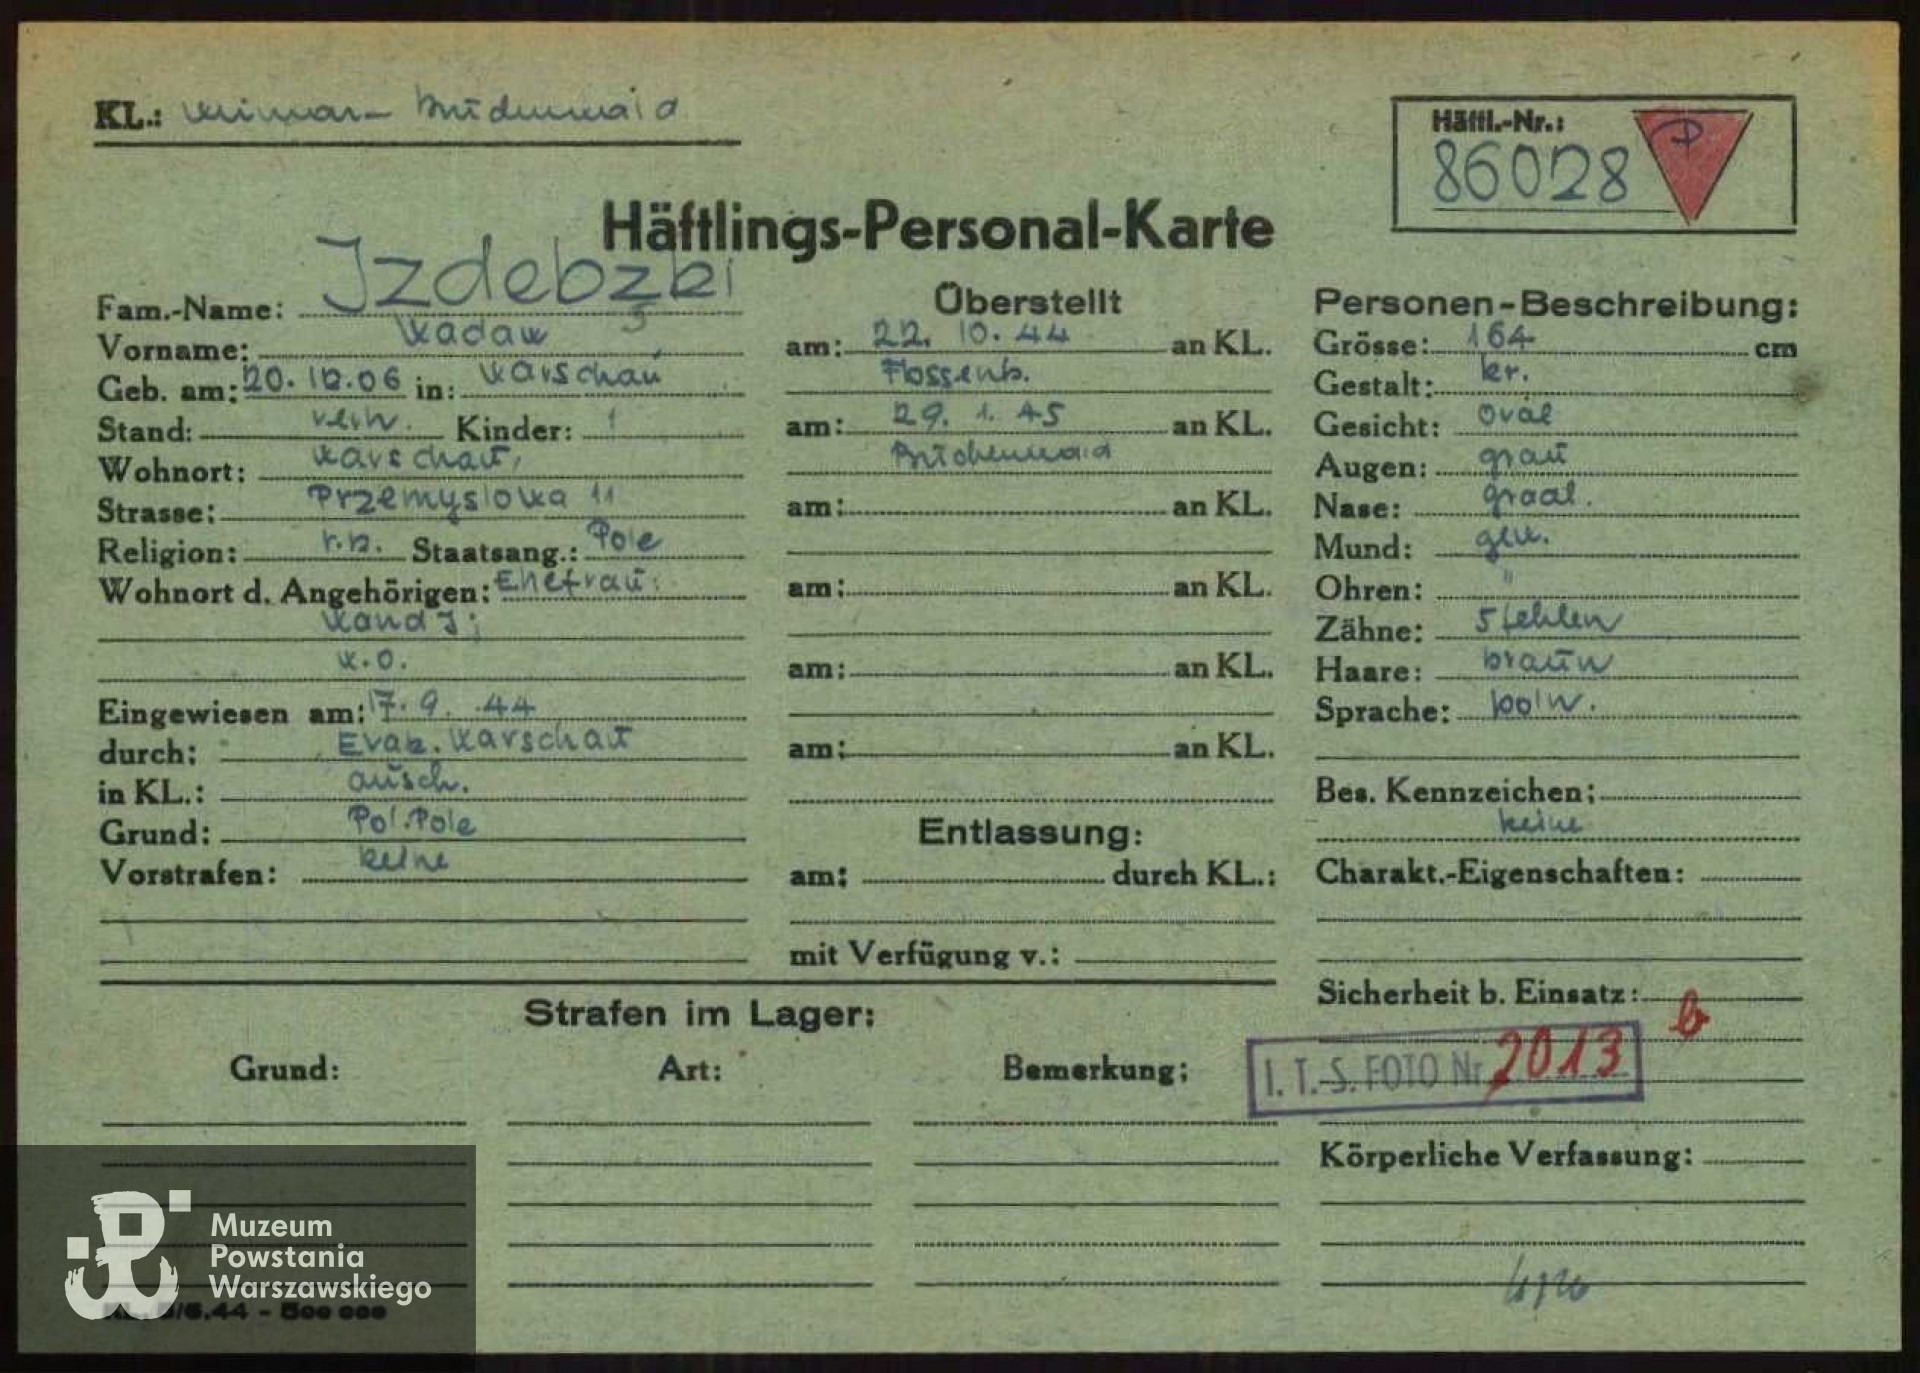 KL.: Weimar-Buchenwald
Häftl.-Nr.:
86028
P
Häftlings-Personal-Karte
Fam.-Name: Izdebzki
s
Vorname: Wadaw
Geb. am: 20. 12. 06 in: Warschau
Stand: verh. Kinder: 1
Wohnort: Warschau,
Strasse: Przemyslowa 11
Religion: r.k. Staatsang.: Pole
Wohnort d. Angehörigen: Ehefrau:
Wand J;
w.o.
Eingewiesen am: 17. 9. 44
durch: Evak. Warschau
in KL.: ausch.
Grund: Pol. Pole
Vorstrafen: keine
Überstellt
am: 22. 10. 44 an KL.
Flossenb.
am: 29. 1. 45 an KL.
Buchenwald
am: an KL.
am: an KL.
am: an KL.
am: an KL.
Entlassung:
am: durch KL.:
mit Verfügung v.:
Personen-Beschreibung:
Grösse: 164 cm
Gestalt: kr.
Gesicht: oval
Augen: grau
Nase: graal.
Mund: gew.
Ohren: "
Zähne: 5 fehlen
Haare: braun
Sprache: poln.
Bes. Kennzeichen:
keine
Charakt.-Eigenschaften:
Sicherheit b. Einsatz:
b
I. T. S. FOTO Nr 2013
Körperliche Verfassung:
Strafen im Lager:
Grund: Art: Bemerkung:
Muzeum
Powstania
Warszawskiego
KL. 5/6.44 - 500 000